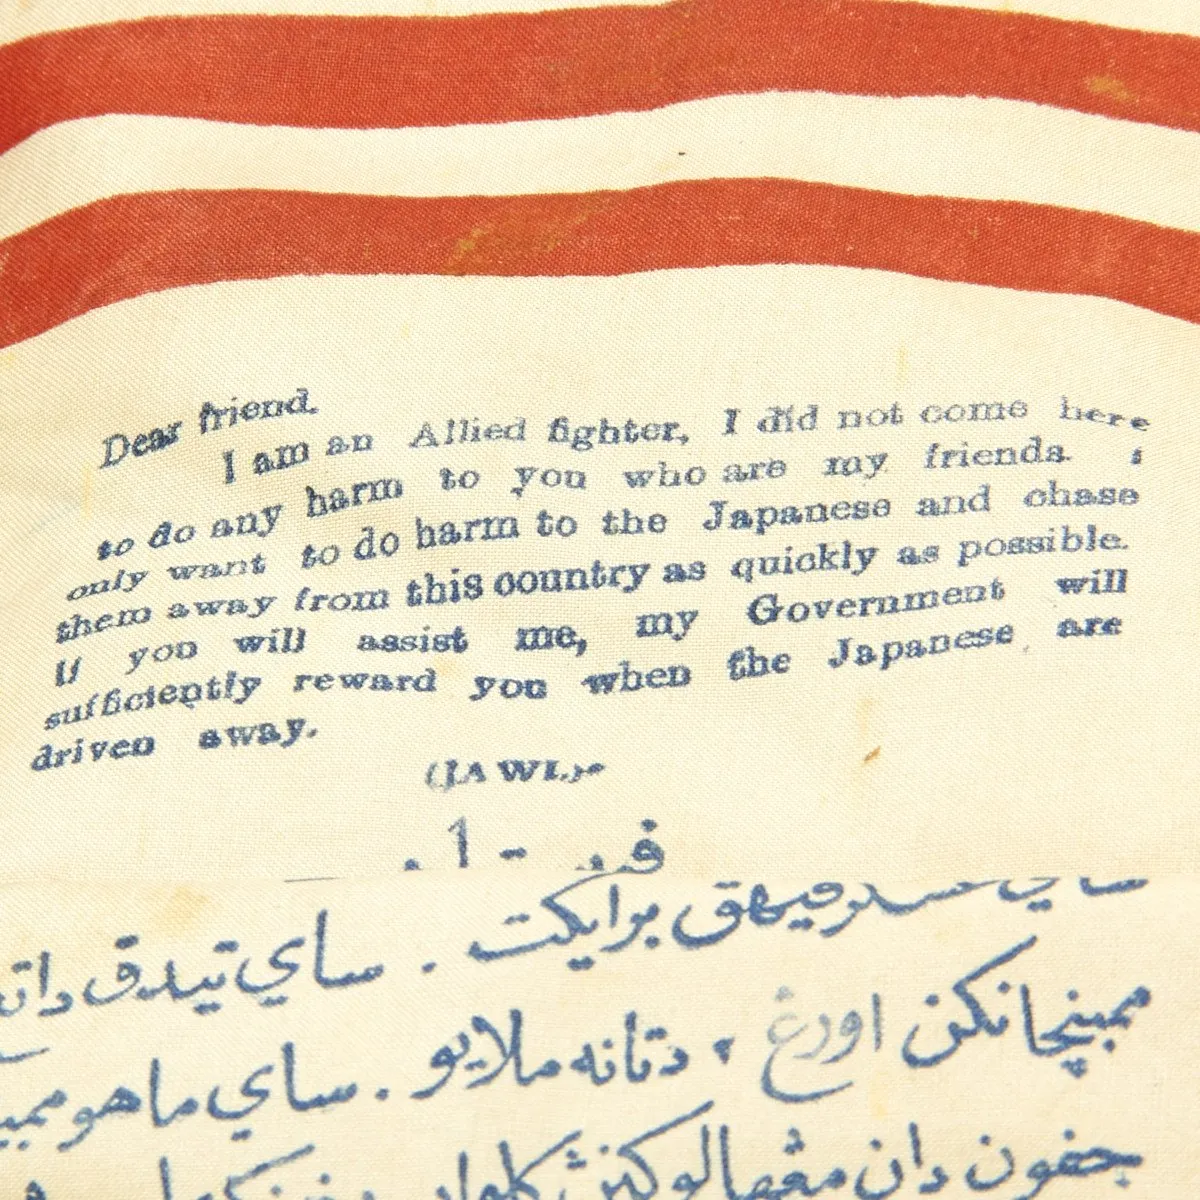 Dear friend.
I am an Allied fighter, I did not come here
to do any harm to you who are my friends. I
only want to do harm to the Japanese and chase
them away from this country as quickly as possible.
If you will assist me, my Government will
sufficiently reward you when the Japanese are
driven away.
(JAWI.)
ساي تيدق
ممبنچانكن اورڠ٢ دتانه ملايو. ساي ماهو
جفون دان مڠهالوكنڽ